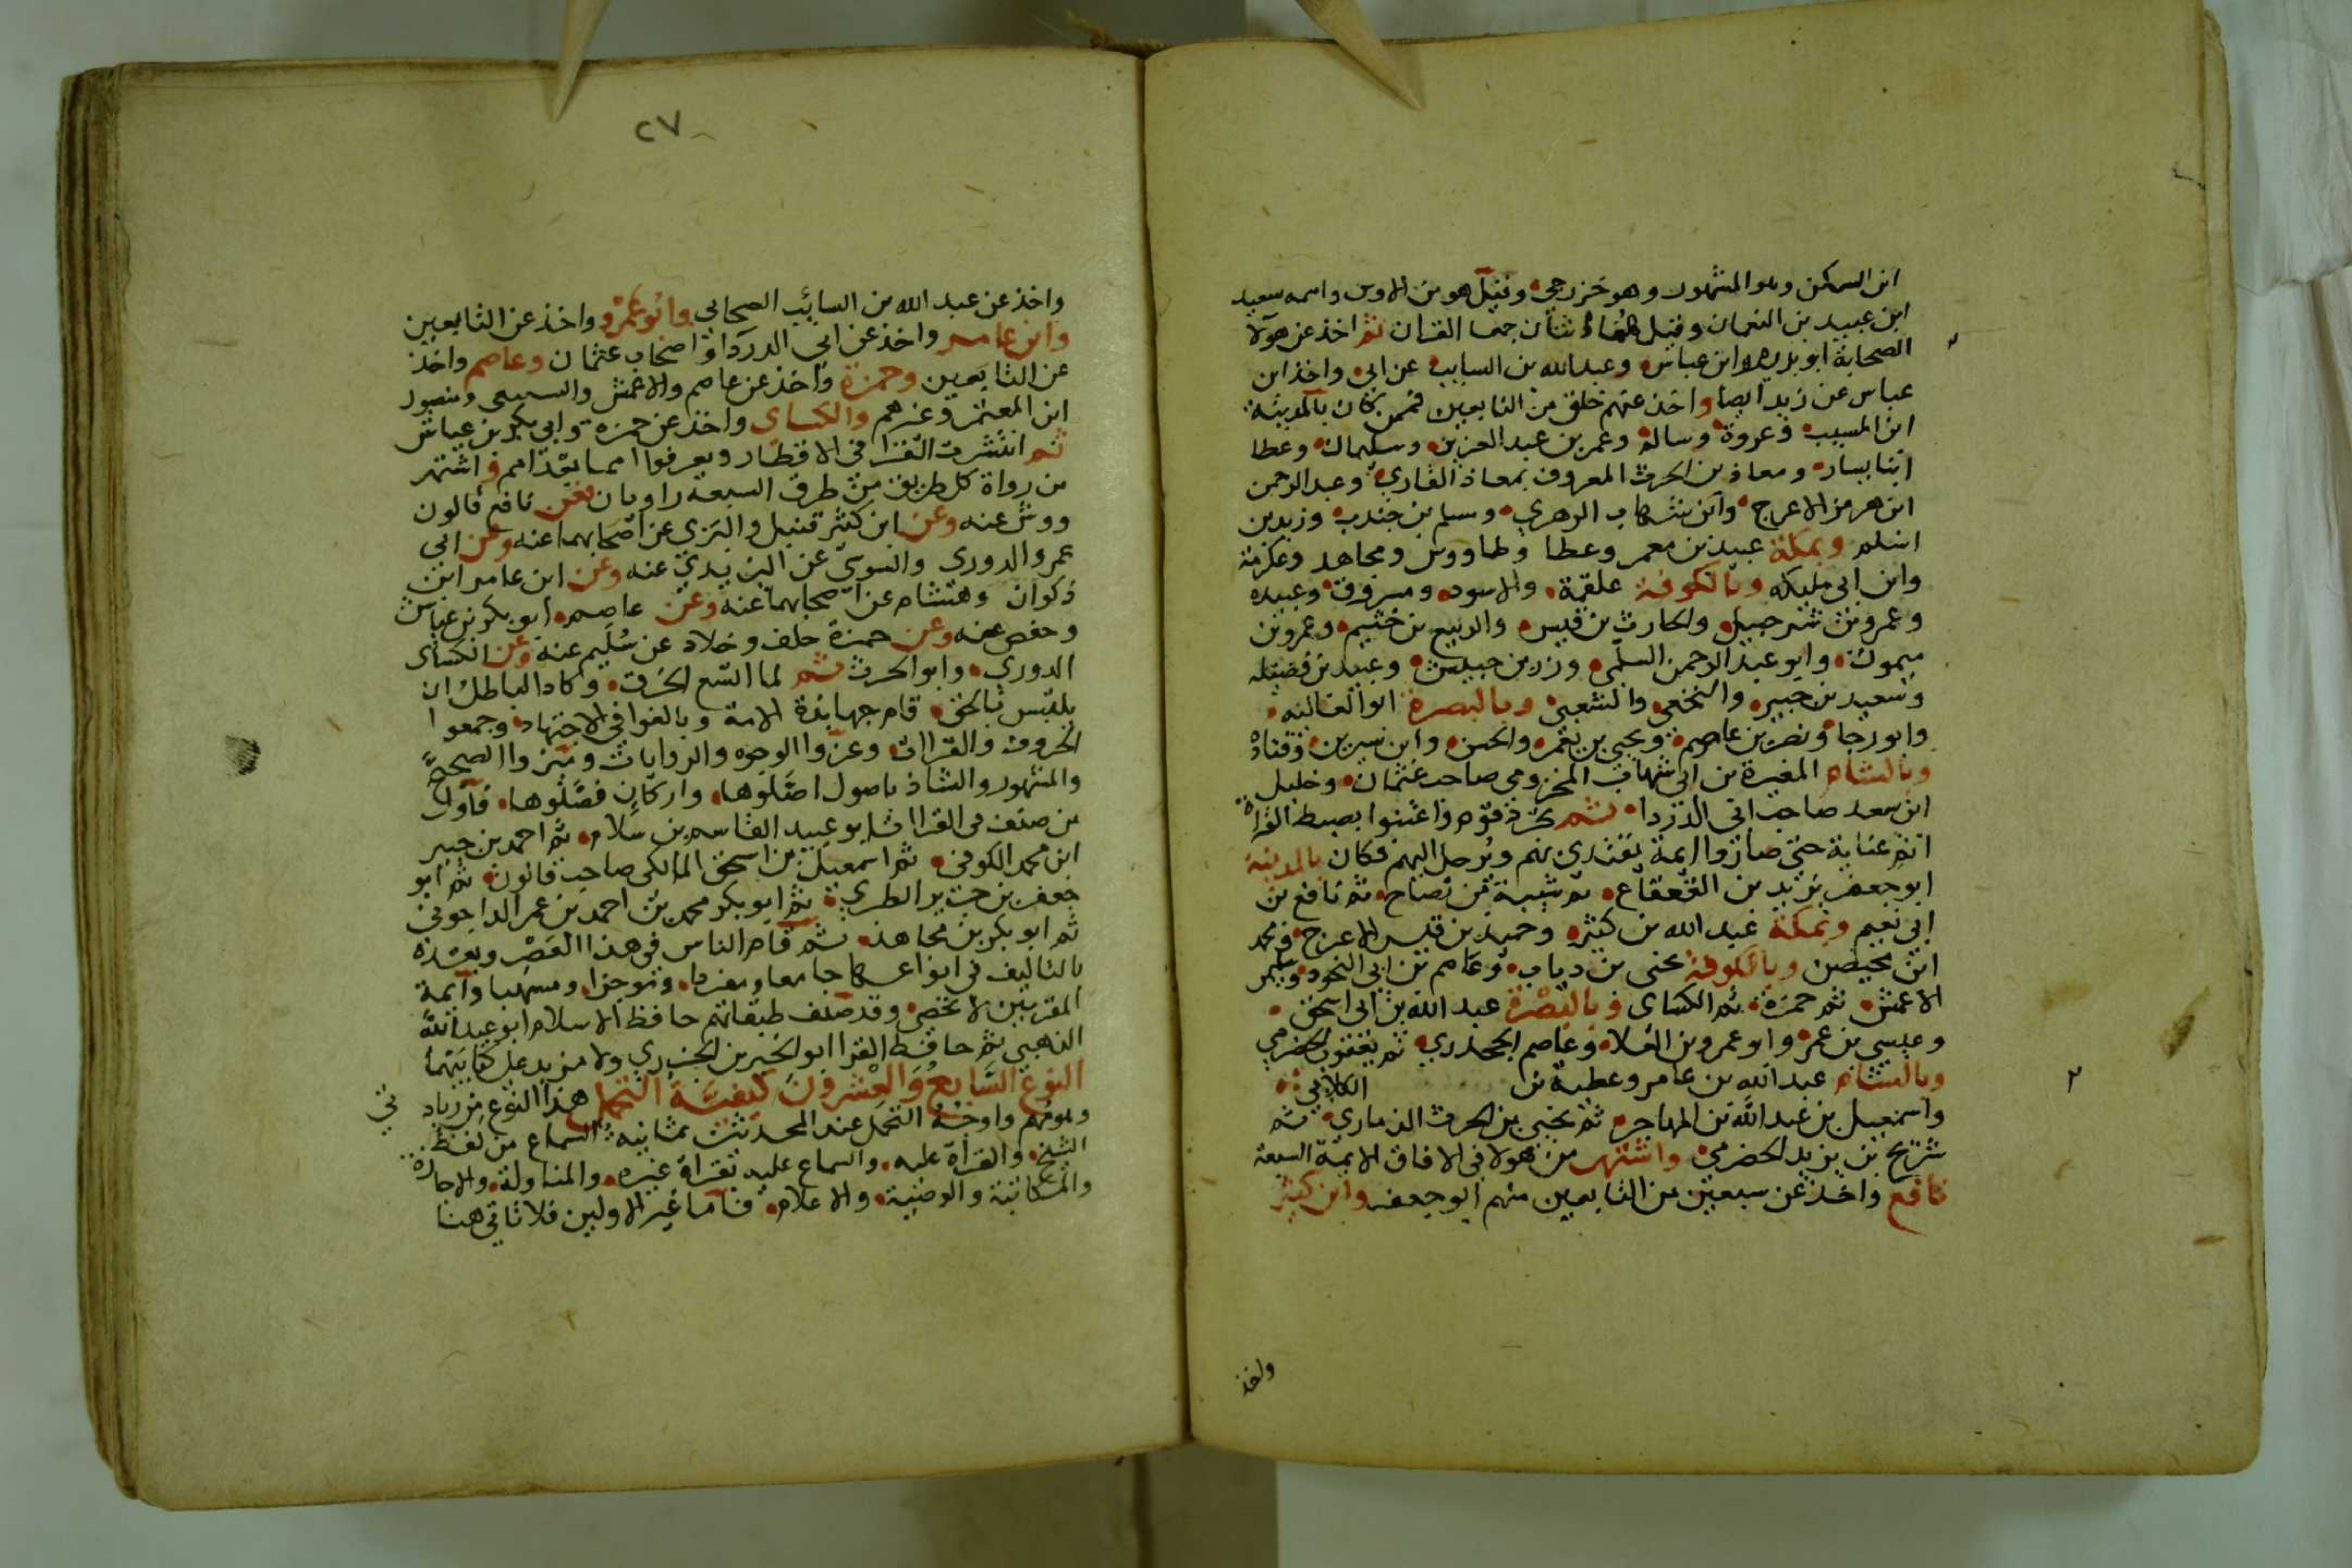 ابن السكن وهو المشهور وهو خزرجي وقيل هو من الاوس واسمه سعيد
ابن عبيد بن النعمان وقيل هما اثنان جمعا القران ثم اخذ عن هولا
الصحابة ابو هريرة وابن عباس وعبد الله بن السايب عن ابي واخذ ابن
عباس عن زيد ايضا واخذ عنهم خلق من التابعين فممن كان بالمدينة
ابن المسيب وعروة وسالم وعمر بن عبد العزيز وسليمان وعطا
ابنا يسار ومعاذ بن الحرث المعروف بمعاذ القاري وعبد الرحمن
ابن هرمز الاعرج وابن شهاب الزهري ومسلم بن جندب وزيد بن
اسلم وبمكة عبيد بن عمير وعطا وطاووس ومجاهد وعكرمة
وابن ابي مليكه وبالكوفة علقمة والاسود ومسروق وعبيده
وعمرو بن شرحبيل والحارث بن قيس والربيع بن خثيم وعمرو بن
ميمون وابو عبد الرحمن السلمي وزر بن حبيش وعبيد بن فضيله
وسعيد بن جبير والنخعي والشعبي وبالبصرة ابو العاليه
وابو رجا ونصر بن عاصم ويحيي بن يعمر والحسن وابن سيرين وقتادة
وبالشام المغيرة بن ابي شهاب المخزومي صاحب عثمان وخليل
ابن سعد صاحب ابي الدردا ثم تجرد قوم واعتنوا بضبط القراة
اتم عناية حتى صاروا ايمة يقتدى بهم ويرحل اليهم فكان بالمدينة
ابو جعفر يزيد بن القعقاع ثم شيبة بن نصاح ثم نافع بن
ابي نعيم وبمكة عبد الله بن كثير وحميد بن قيس الاعرج ومحمد
ابن محيصن وبالكوفة يحيى بن وثاب وعاصم بن ابي النجود وسليمن
الاعمش ثم حمزة ثم الكساى وبالبصرة عبد الله بن ابي اسحق
وعيسى بن عمر وابو عمرو بن العلا وعاصم الجحدري ثم يعقوب الحضرمي
وبالشام عبد الله بن عامر وعطية بن الكلابي
واسمعيل بن عبد الله بن المهاجر ثم يحيى بن الحرث الذماري ثم
شريح بن يزيد الحضرمي واشتهر من هولا في الافاق الايمة السبعة
نافع واخذ عن سبعين من التابعين منهم ابو جعفر وابن كثير
٢
واخذ
٢٧
واخذ عن عبد الله بن السائب الصحابي وابو عمرو واخذ عن التابعين
وابن عامر واخذ عن ابي الدردا واصحاب عثمان وعاصم واخذ
عن التابعين وحمزة واخذ عن عاصم والاعمش والسبيعي ومنصور
ابن المعتمر وغيرهم والكساى واخذ عن حمزه وابي بكر بن عياش
ثم انتشرت القرا في الاقطار وتفرقوا امما بعد امم واشتهر
من رواة كل طريق من طرق السبعة راويان فعن نافع قالون
وورش عنه وعن ابن كثير قنبل والبزى عن اصحابهما عنه وعن ابي
عمرو الدورى والسوسي عن اليزيدي عنه وعن ابن عامر ابن
ذكوان وهشام عن اصحابهما عنه وعن عاصم ابو بكر بن عياش
وحفص عنه وعن حمزة خلف وخلاد عن سليم عنه وعن الكساى
الدوري وابو الحرث ثم لما اتسع الخرق وكاد الباطل ان
يلتبس بالحق قام جهابذة الامة وبالغوا في الاجتهاد وجمعوا
الحروف والقراات وعزوا الوجوه والروايات وميزوا الصحيح
والمشهور والشاذ باصول اصلوها واركان فصلوها فاول
من صنف في القراات ابو عبيد القاسم بن سلام ثم احمد بن جبير
ابن محمد الكوفي ثم اسمعيل بن اسحق المالكي صاحب قالون ثم ابو
جعفر بن جرير الطبري ثم ابو بكر محمد بن احمد بن عمر الداجوني
ثم ابو بكر بن مجاهد ثم قام الناس في هذا العصر وبعده
بالتاليف في انواعها جامعا ومفردا وموجزا ومسهبا وايمة
القراات لا تحصى وقد صنف طبقاتهم حافظ الاسلام ابو عبد الله
الذهبي ثم حافظ القرا ابو الخير بن الجزري ولا مزيد على كتابيهما
النوع السابع والعشرون كيفية التحمل هذا النوع من زيادتي
وهو مهم واوجه التحمل عند المحدثين ثمانيه السماع من لفظ
الشيخ والقراة عليه والسماع عليه بقراة غيره والمناولة والاجازة
والمكاتبة والوصية والاعلام فاما غير الاولين فلا تاتي هنا